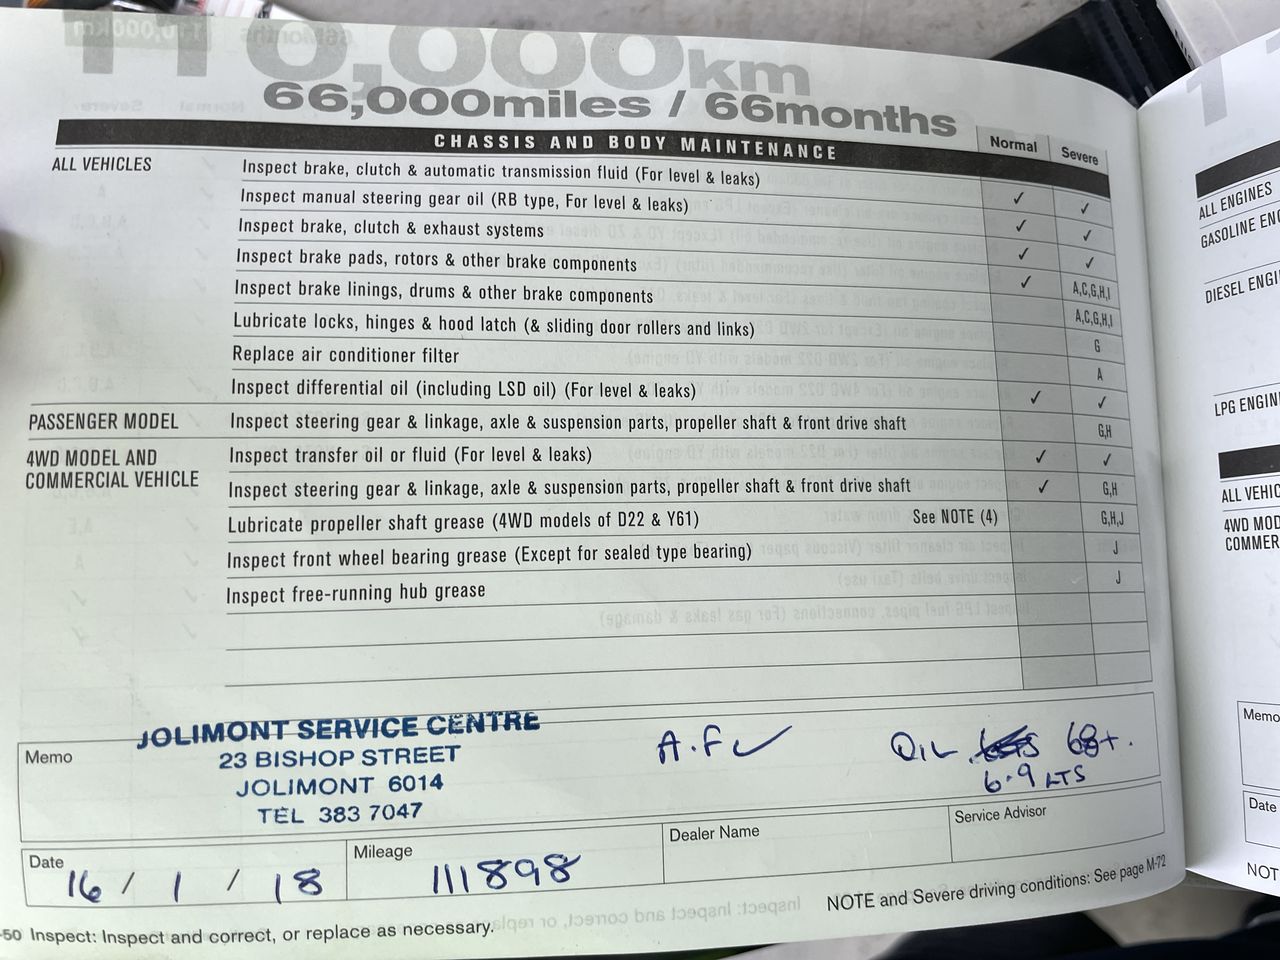 110,000km
66,000miles / 66months
CHASSIS AND BODY MAINTENANCE Normal Severe
ALL VEHICLES Inspect brake, clutch & automatic transmission fluid (For level & leaks) ✓ ✓
Inspect manual steering gear oil (RB type, For level & leaks) ✓ ✓
Inspect brake, clutch & exhaust systems ✓ ✓
Inspect brake pads, rotors & other brake components ✓ A,C,G,H,I
Inspect brake linings, drums & other brake components A,C,G,H,I
Lubricate locks, hinges & hood latch (& sliding door rollers and links) G
Replace air conditioner filter A
Inspect differential oil (including LSD oil) (For level & leaks) ✓ ✓
PASSENGER MODEL Inspect steering gear & linkage, axle & suspension parts, propeller shaft & front drive shaft G,H
4WD MODEL AND Inspect transfer oil or fluid (For level & leaks) ✓ ✓
COMMERCIAL VEHICLE Inspect steering gear & linkage, axle & suspension parts, propeller shaft & front drive shaft ✓ G,H
Lubricate propeller shaft grease (4WD models of D22 & Y61) See NOTE (4) G,H,J
Inspect front wheel bearing grease (Except for sealed type bearing) J
Inspect free-running hub grease J
Memo
JOLIMONT SERVICE CENTRE
23 BISHOP STREET
JOLIMONT 6014
TEL 383 7047
A.F ✓
OIL 68+.
6.9 LTS
Date 16 / 1 / 18
Mileage 111898
Dealer Name
Service Advisor
-50 Inspect: Inspect and correct, or replace as necessary.
NOTE and Severe driving conditions: See page M-72
1
ALL ENGINES
GASOLINE ENG
DIESEL ENGI
LPG ENGIN
ALL VEHIC
4WD MOD
COMMER
Memo
Date
NOT